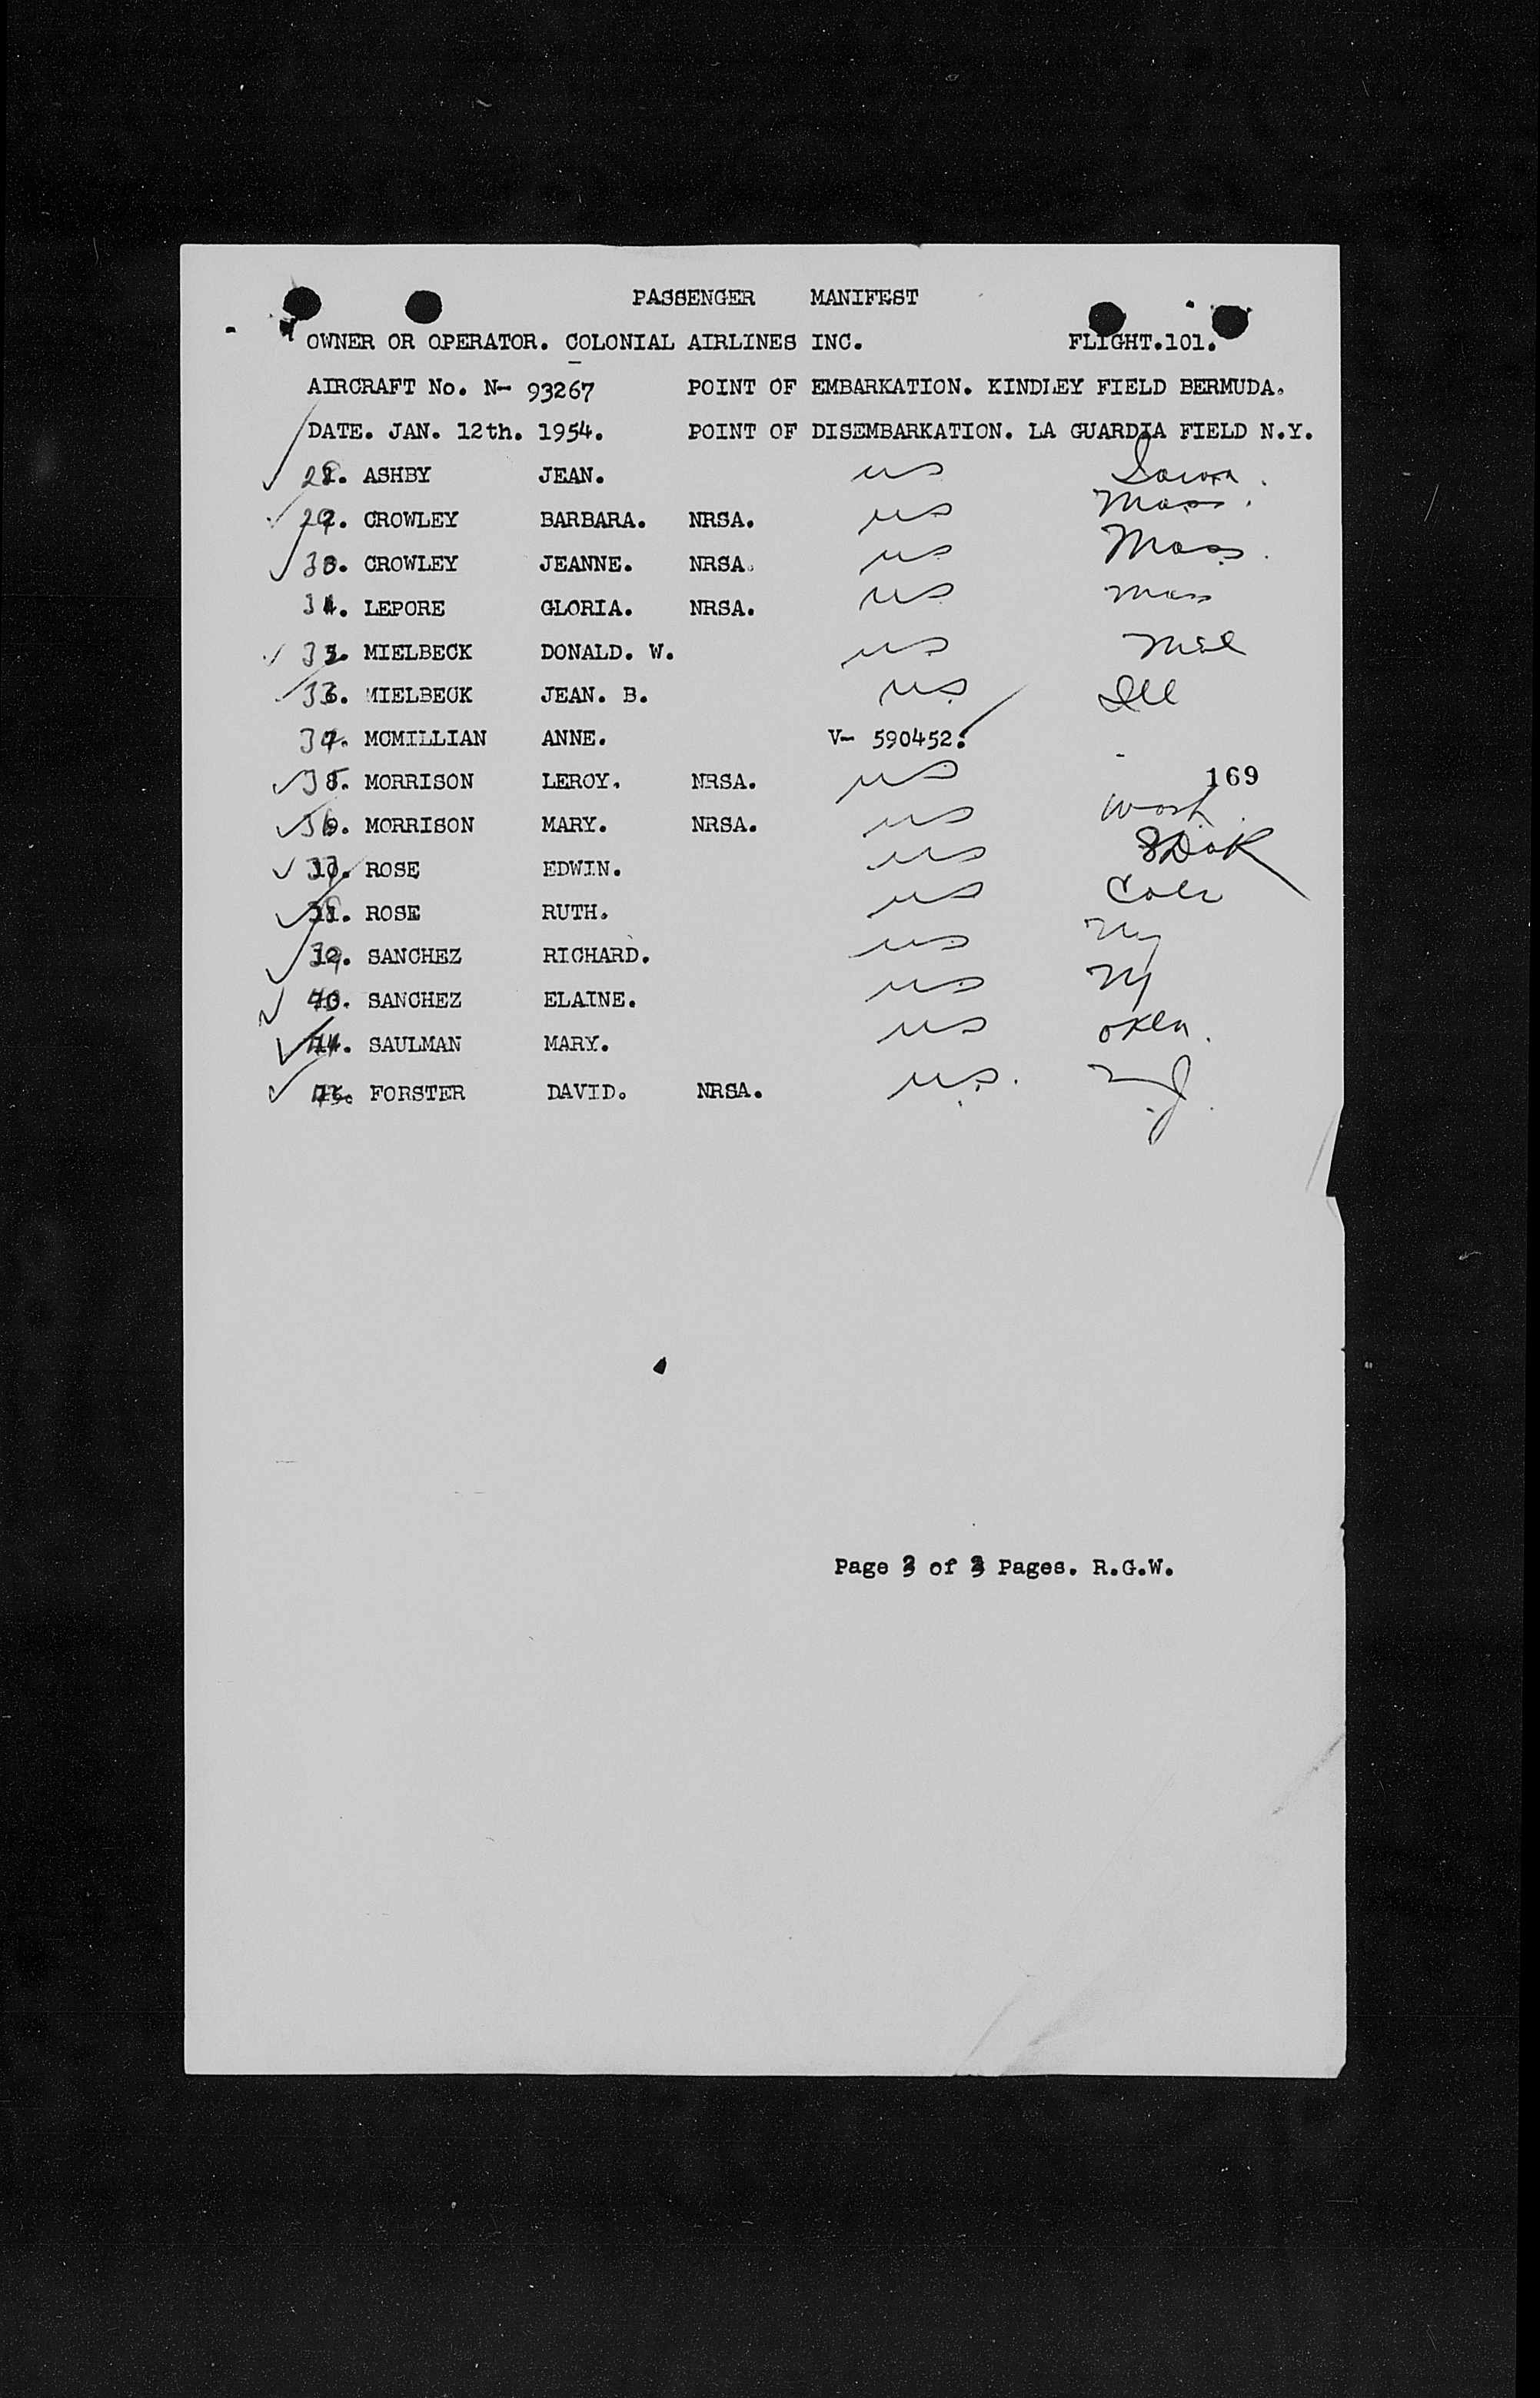 PASSENGER MANIFEST
OWNER OR OPERATOR. COLONIAL AIRLINES INC. FLIGHT.101.
AIRCRAFT No. N- 93267 POINT OF EMBARKATION. KINDLEY FIELD BERMUDA.
DATE. JAN. 12th. 1954. POINT OF DISEMBARKATION. LA GUARDIA FIELD N.Y.
28. ASHBY JEAN. us
29. CROWLEY BARBARA. NRSA. us Mass.
30. CROWLEY JEANNE. NRSA. us Mass.
31. LEPORE GLORIA. NRSA. us Mass
32. MIELBECK DONALD. W. us
33. MIELBECK JEAN. B. us Ill
34. MCMILLIAN ANNE. V- 590452.
35. MORRISON LEROY. NRSA. us 169
36. MORRISON MARY. NRSA. us Wash.
37. ROSE EDWIN. us SDak
38. ROSE RUTH. us Colo
39. SANCHEZ RICHARD. us Ny
40. SANCHEZ ELAINE. us Ny
41. SAULMAN MARY. us Okla.
FORSTER DAVID. NRSA. us. NJ
Page 3 of 3 Pages. R.G.W.